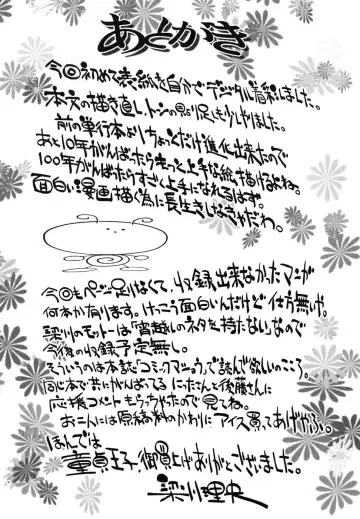 あとがき
今回初めて表紙を自分でデジタル着彩しました。
本文の描き直しトーンの貼り足しも少しやりました。
前の単行本よりちょっとだけ進化出来たので
あと10年がんばったらきっと上手な絵描けるよね。
100年がんばったらすごく上手になれるはず。
面白い漫画描く為に長生きしなきゃだわ。
今回もページ足りなくて、収録出来なかったマンガ
何本か有ります。けっこう面白いんだけど仕方無いや。
梁川のモットーは「宵越しのネタを持たない」なので
今後の収録予定無し。
そういうのは本誌で「コミックマショウ」で読んで欲しいのころ。
同じ本で共にがんばってる にったさんと後藤さんに
応援コメントもらっちゃったので見てね。
お二人には原稿料のかわりにアイス買ってあげやふ。
ほんでは
童貞王子、御買上げありがとうございました。
梁川理央